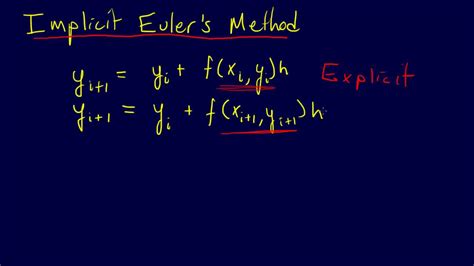 Implicit Euler's Method
y_{i+1} = y_i + f(x_i, y_i)h Explicit
y_{i+1} = y_i + f(x_{i+1}, y_{i+1})h